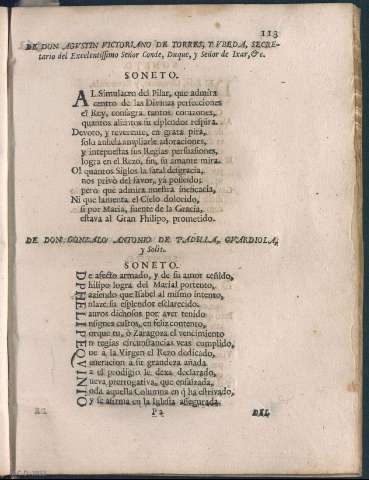 113
DE DON AGVSTIN VICTORIANO DE TORRES, Y VBEDA, SECRE-
tario del Excelentissimo Señor Conde, Duque, y Señor de Ixar, &c.
SONETO.
AL Simulacro del Pilar, que admira
centro de las Divinas perfecciones
el Rey, consagra tantos corazones,
quantos alientos su esplendor respira.
Devoto, y reverente, en grata pira,
solo anhela ampliarle adoraciones,
y interpuestas sus Regias persuasiones,
logra en el Rezo, fin, su amante mira.
O! quantos Siglos la fatal desgracia,
nos privò del favor, ya posseido;
pero que admira nuestra ineficacia,
Ni que lamenta el Cielo dolorido,
si por Maria, fuente de la Gracia,
estava al Gran Philipo, prometido.
DE DON GONZALO ANTONIO DE PADILLA, GVARDIOLA,
y Solit.
SONETO.
De afecto armado, y de su amor ceñido,
Philipo logra del Marial portento,
Haziendo que Isabel al mismo intento,
Enlaze su esplendor esclarecido.
Lauros dichosos por aver tenido
Insignes cultos, en feliz contento,
Porque tu, ò Zaragoza el vencimiento
En regias circunstancias veas cumplido,
Que à la Virgen el Rezo dedicado,
Veneracion à su grandeza añada
I el prodigio le dexa declarado,
Nueva prerrogativa, que ensalzada,
I oda aquella Columna en q̃ ha estrivado,
O y se afirma en la Iglesia assegurada.
P2
DEL